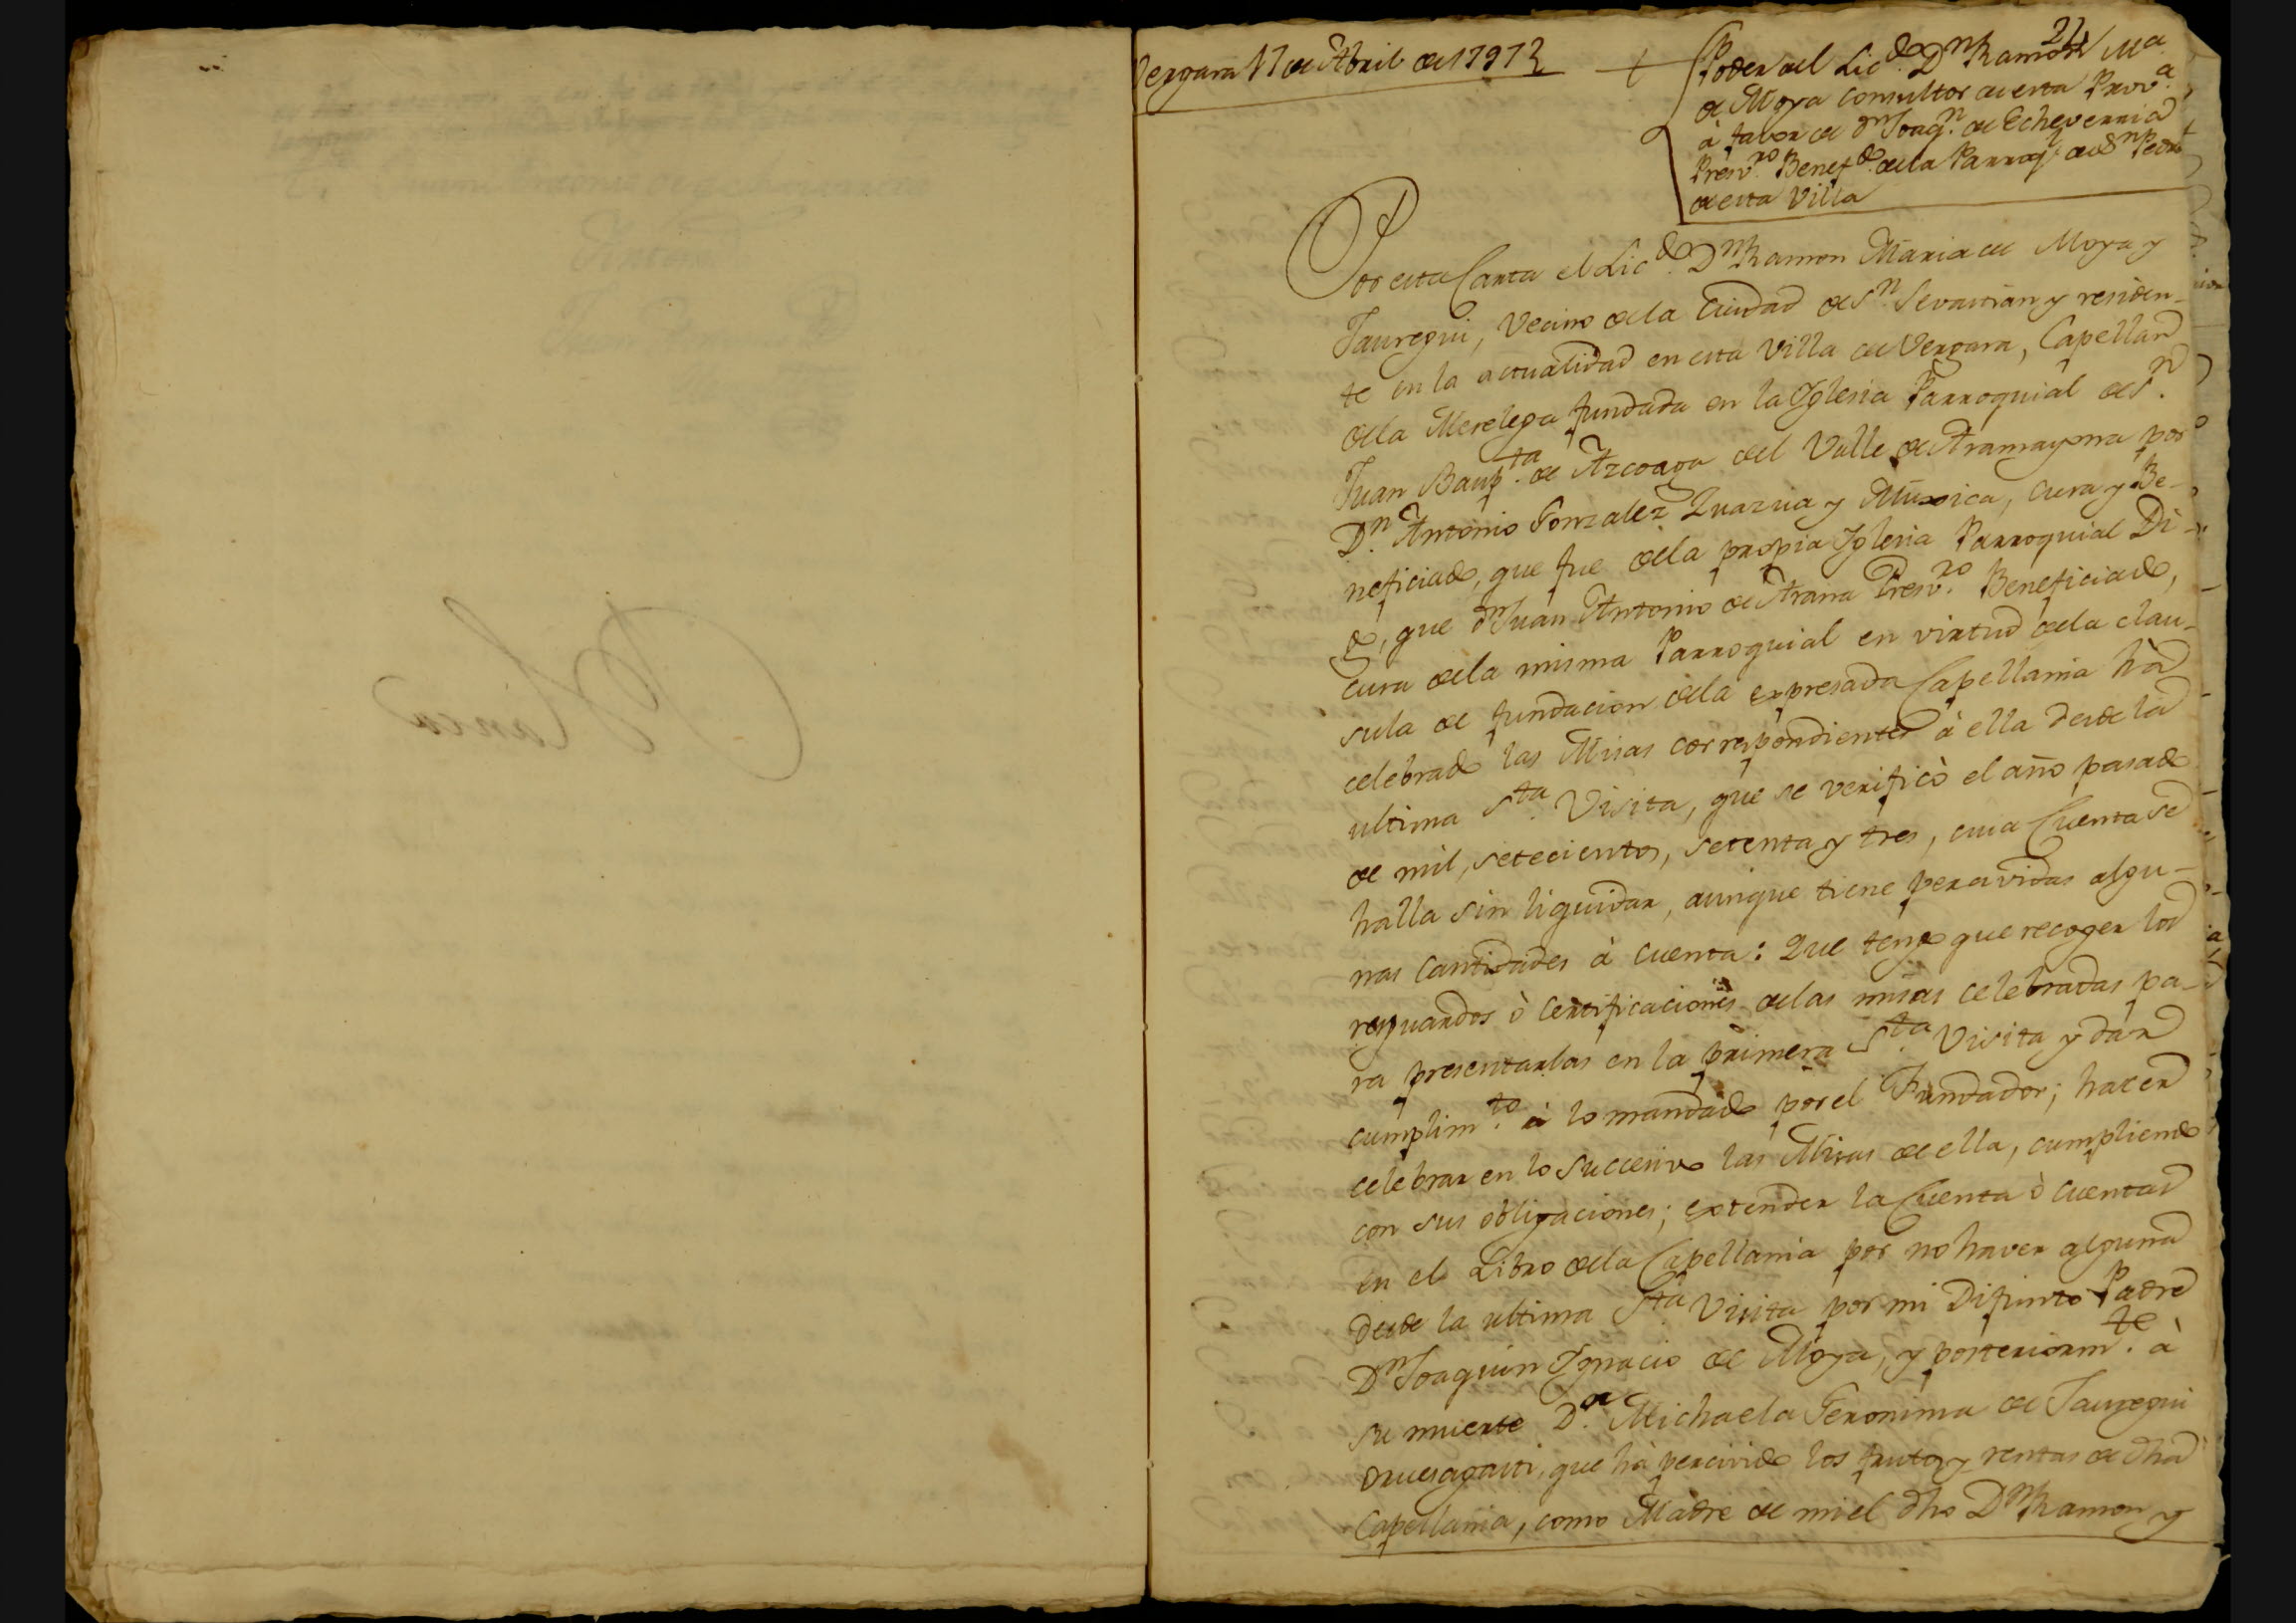 Vergara 17 de Abril de 1797
21
Poder del Licdo. Dn Ramon Ma.
de Moya consultor de esta Prova.
à favor de Dn Joaqn. de Echeverria
Presvro. Benefdo. de la Parroq. de Sn Pedro
de esta Villa
Por esta Carta el Licdo. Dn Ramon Maria de Moya y
Jauregui, Vecino de la Ciudad de Sn. Sevastian y residen-
te en la actualidad en esta Villa de Vergara, Capellan
de la Merelega fundada en la Iglesia Parroquial de Sn.
Juan Baupta. de Azcoaga del Valle de Aramayona por
Dn. Antonio Gonzalez Quazua y Muxica, Cura y Be-
neficiado, que fue de la propia Iglesia Parroquial Di-
go, que Dn Juan Antonio de Arana Presvro. Beneficiado,
Cura de la misma Parroquial en virtud de la clau-
sula de fundacion de la expresada Capellania hà
celebrado las Misas correspondientes à ella desde la
ultima Sta. Visita, que se verificò el año pasado
de mil, setecientos, setenta y tres, cuia Cuenta se
halla sin liquidar, aunque tiene percividas algu-
nas Cantidades à cuenta: Que tengo que recoger los
resguardos ò Certificaciones de las misas celebradas pa-
ra presentarlas en la primera Sta. Visita y dar
cumplimto. à lo mandado por el Fundador; hacer
celebrar en lo succesivo las Misas de ella, cumpliendo
con sus obligaciones; extender la Cuenta ò Cuentas
en el Libro de la Capellania por no haver alguna
desde la ultima Sta Visita por mi Difunto Padre
Dn Joaquin Ignacio de Moya, y posteriormte. à
su muerte Da. Michaela Geronima de Jauregui
Oruesagasti, que hà percivido los frutos y rentas de dha
Capellania, como Madre de mi el dho Dn Ramon y
Blanco